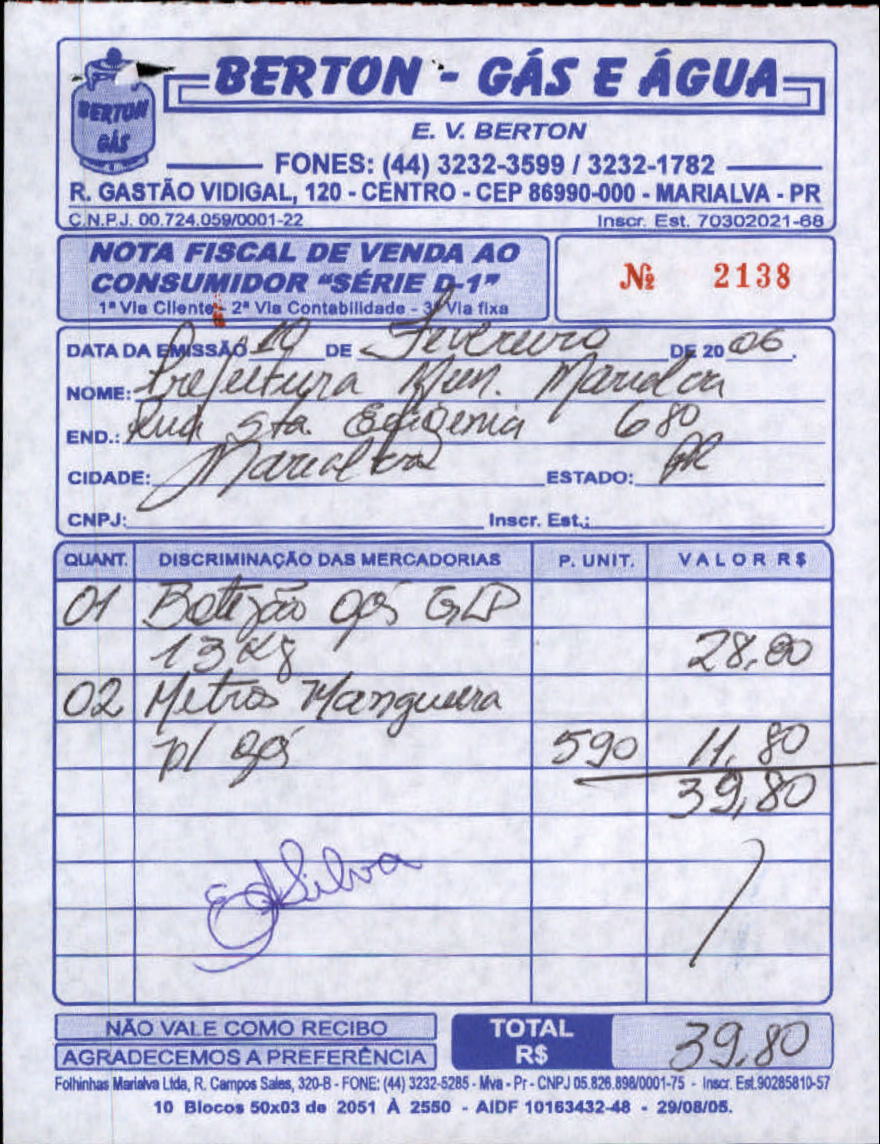 BERTON GÁS
BERTON - GÁS E ÁGUA
E. V. BERTON
FONES: (44) 3232-3599 / 3232-1782
R. GASTÃO VIDIGAL, 120 - CENTRO - CEP 86990-000 - MARIALVA - PR
C.N.P.J. 00.724.059/0001-22 Inscr. Est. 70302021-68
NOTA FISCAL DE VENDA AO
CONSUMIDOR "SÉRIE D-1"
1ª Via Cliente - 2ª Via Contabilidade - 3ª Via fixa
Nº 2138
DATA DA EMISSÃO DE Fevereiro DE 20 06.
NOME: Prefeitura Mun. Marialva
END.: Rua Sta. Efigenia 680
CIDADE: Marialva ESTADO: PR
CNPJ: Inscr. Est.:
QUANT. DISCRIMINAÇÃO DAS MERCADORIAS P. UNIT. VALOR R$
01 Botijão gás GLP
13 kg 28,00
02 Metros Mangueira
p/ gás 590 11,80
39,80
Silva
NÃO VALE COMO RECIBO
AGRADECEMOS A PREFERÊNCIA
TOTAL R$ 39,80
Folhinhas Marialva Ltda, R. Campos Sales, 320-B - FONE: (44) 3232-5285 - Mva - Pr - CNPJ 05.826.898/0001-75 - Inscr. Est.90285810-57
10 Blocos 50x03 de 2051 À 2550 - AIDF 10163432-48 - 29/08/05.